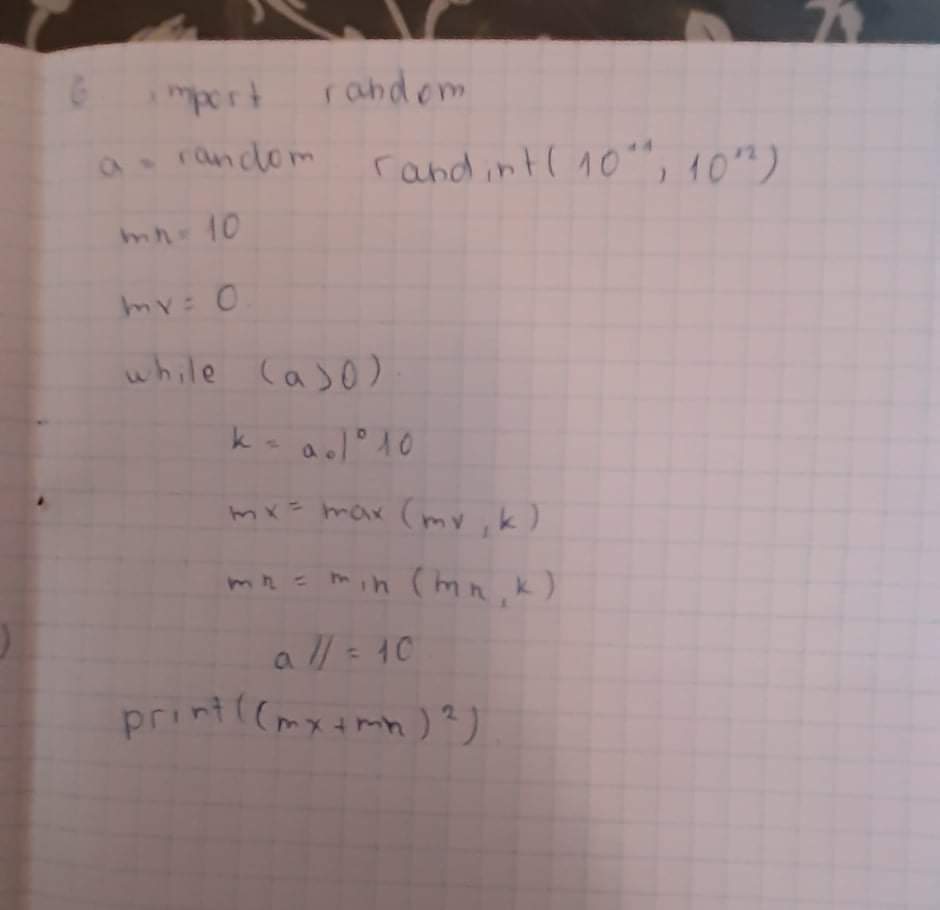 6 import random
a = random randint(10¹¹, 10¹²)
mn = 10
mx = 0
while (a>0)
k = a % 10
mx = max (mx, k)
mn = min (mn, k)
a // = 10
print((mx+mn)²)